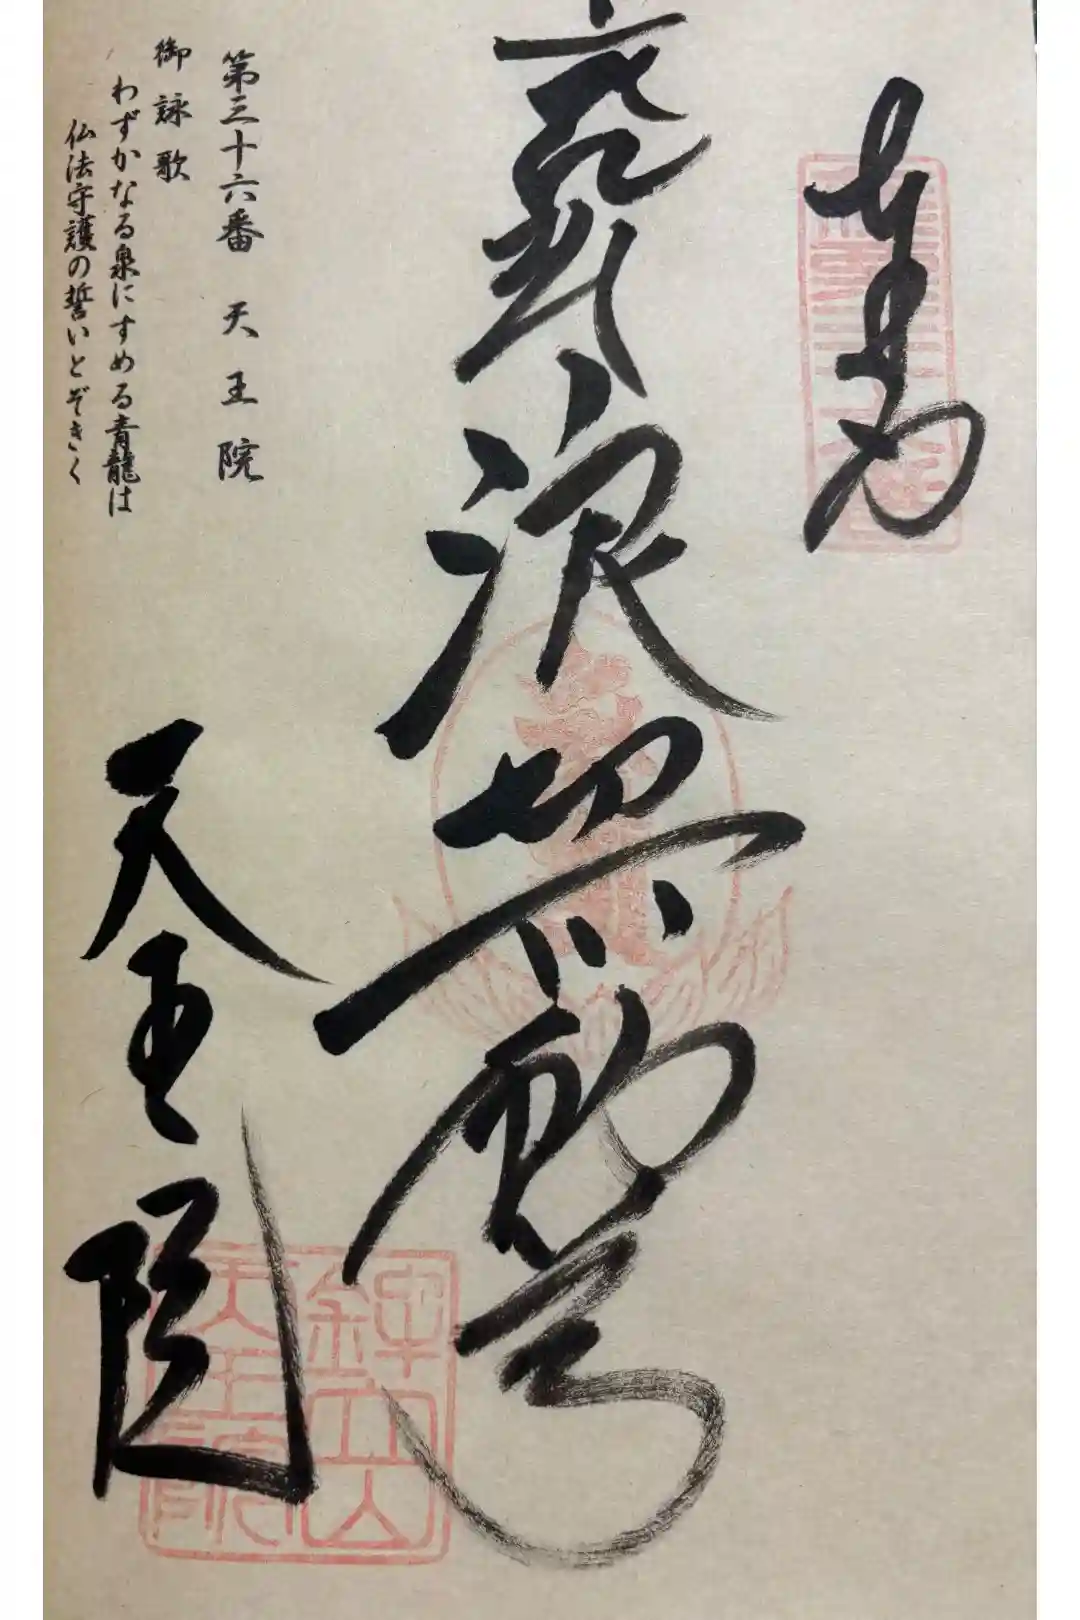 奉拝
浪切不動尊
第三十六番 天王院
御詠歌
わずかなる泉にすめる青龍は
仏法守護の誓いとぞきく
天王院